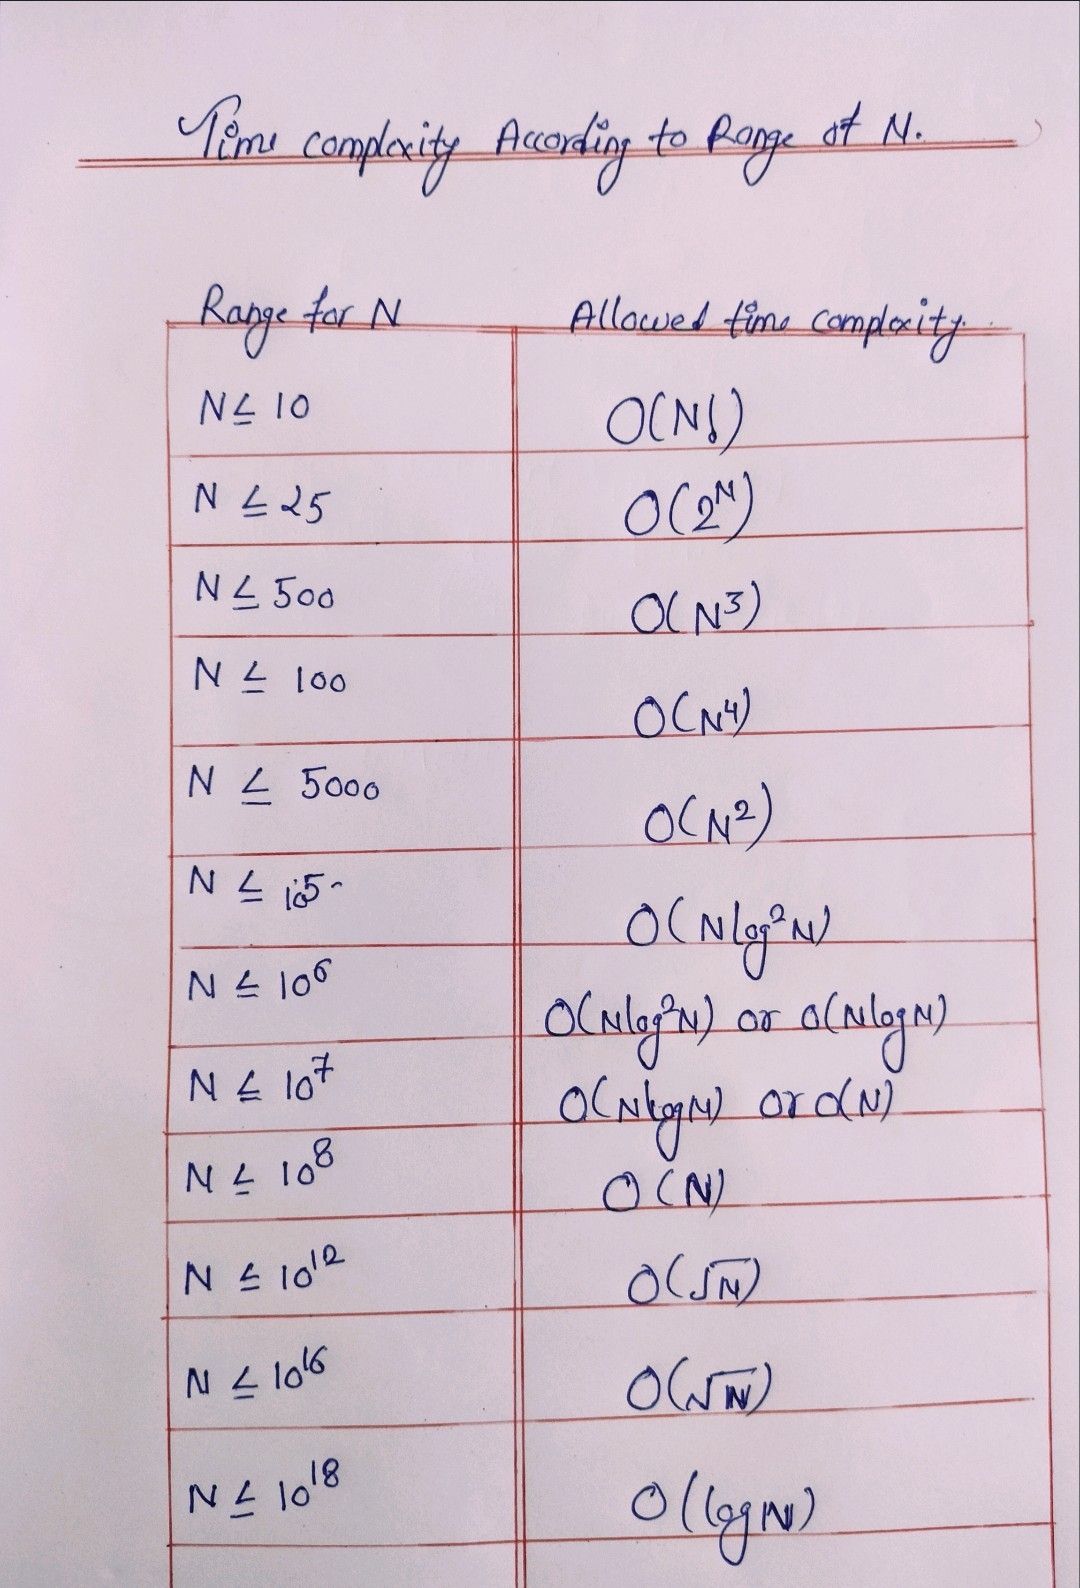 Time complexity According to Range of N.
Range for N Allowed time complexity.
N ≤ 10 O(N!)
N ≤ 25 O(2^N)
N ≤ 500 O(N³)
N ≤ 100 O(N⁴)
N ≤ 5000 O(N²)
N ≤ 10⁵ O(Nlog²N)
N ≤ 10⁶ O(Nlog²N) or O(NlogN)
N ≤ 10⁷ O(NlogN) or O(N)
N ≤ 10⁸ O(N)
N ≤ 10¹² O(√N)
N ≤ 10¹⁶ O(√N)
N ≤ 10¹⁸ O(logN)